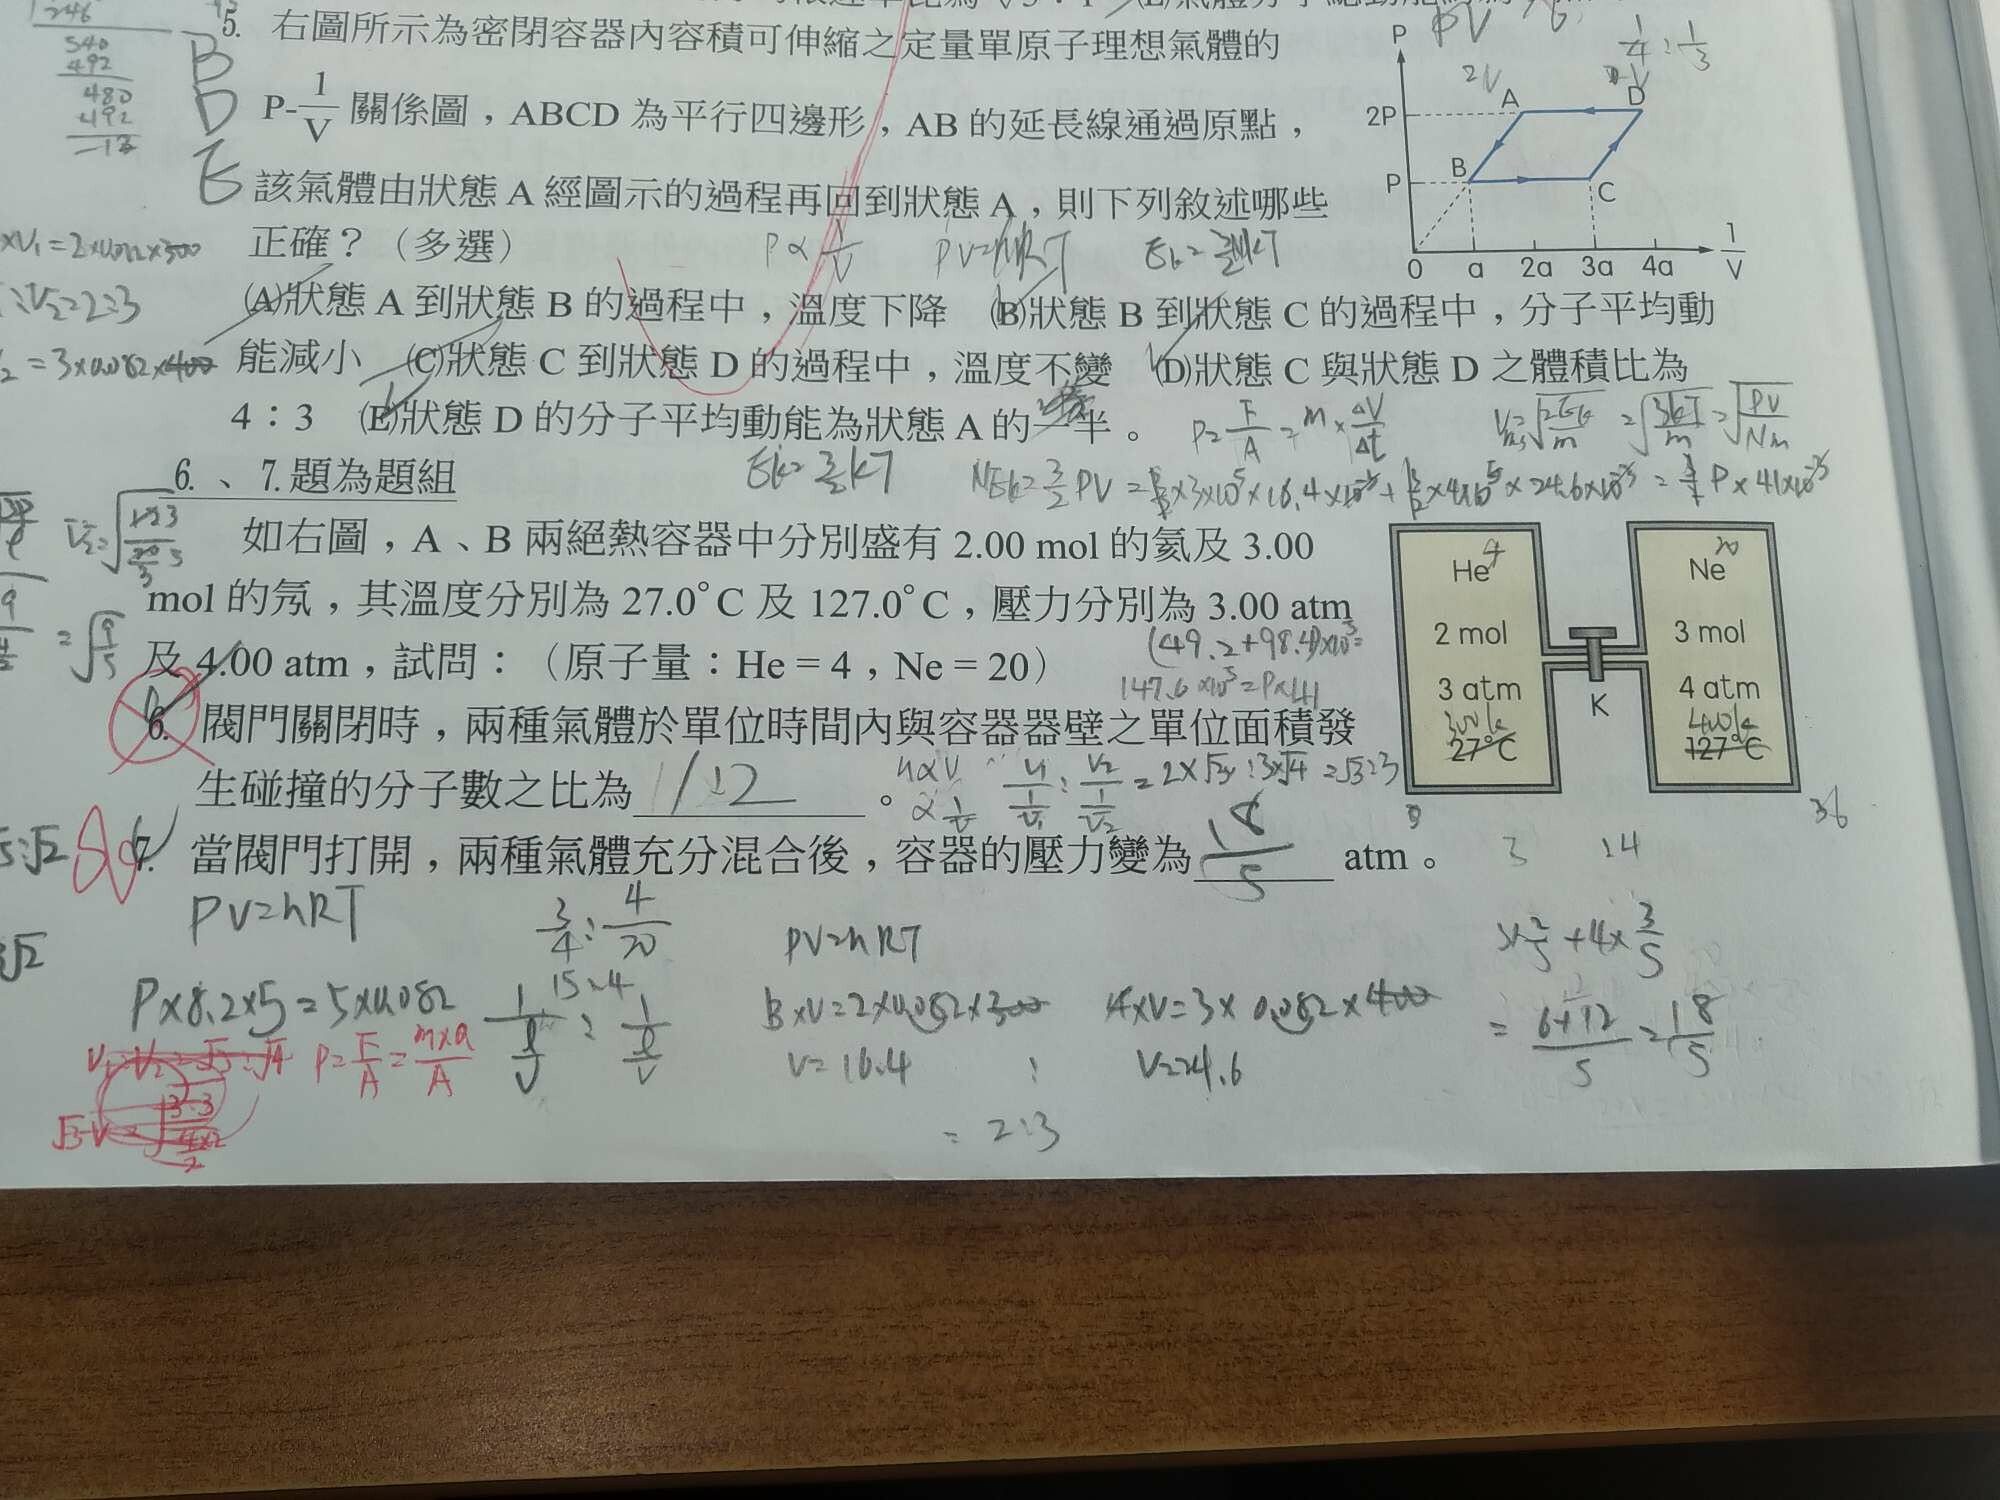 5. 右圖所示為密閉容器內容積可伸縮之定量單原子理想氣體的
P-1/V 關係圖，ABCD 為平行四邊形，AB 的延長線通過原點，
該氣體由狀態 A 經圖示的過程再回到狀態 A，則下列敘述哪些
正確？（多選）
B
D
E
P∝1/V PV=nRT
(A)狀態 A 到狀態 B 的過程中，溫度下降 (B)狀態 B 到狀態 C 的過程中，分子平均動
能減小 (C)狀態 C 到狀態 D 的過程中，溫度不變 (D)狀態 C 與狀態 D 之體積比為
4：3 (E)狀態 D 的分子平均動能為狀態 A 的一半。
P
2P
P
A
D
B
C
0 a 2a 3a 4a 1/V
1/4:1/3
6.、7.題為題組
Ek=3/2kT
如右圖，A、B 兩絕熱容器中分別盛有 2.00 mol 的氦及 3.00
mol 的氖，其溫度分別為 27.0°C 及 127.0°C，壓力分別為 3.00 atm
及 4.00 atm，試問：（原子量：He = 4，Ne = 20）
(49.2+98.4)×10⁻³=
He 4
2 mol
3 atm
300k
27°C
K
Ne 20
3 mol
4 atm
400k
127°C
6. 閥門關閉時，兩種氣體於單位時間內與容器器壁之單位面積發
生碰撞的分子數之比為 1:2 。
7. 當閥門打開，兩種氣體充分混合後，容器的壓力變為 18/5 atm。
36
PV=nRT
3/4:4/20
15:4
PV=nRT
P×8.2×5=5×0.082
3×V=2×0.082×300
4×V=3×0.082×400
V=16.4 : V=24.6
=2:3
3×2/5+4×3/5
=(6+12)/5=18/5
P=F/A=m×a/A